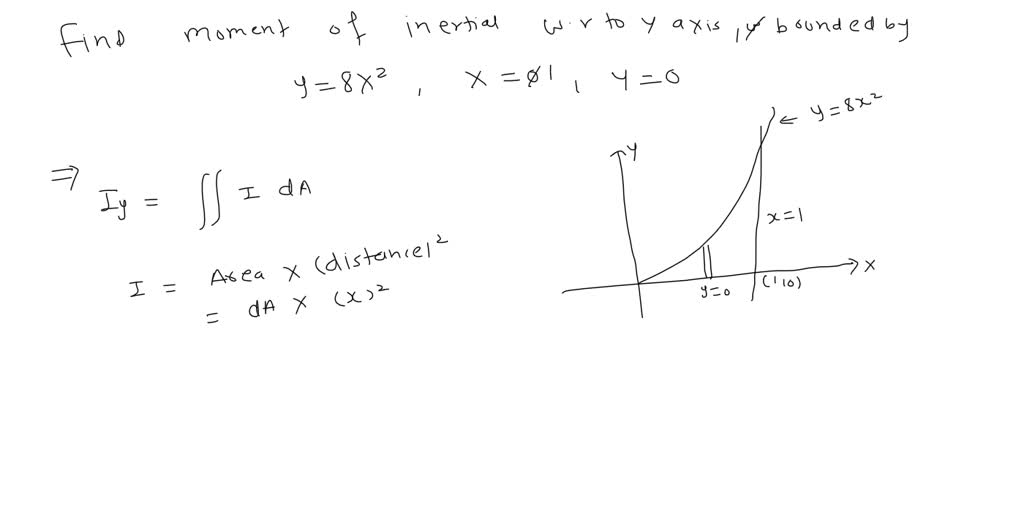 Find moment of inertial w.r to y axis, bounded by
y = 8x², x = 1, y = 0
⇒ Iy = ∬ I dA
I = Area x (distance)²
= dA x (x)²
y
← y = 8x²
x = 1
x
y = 0
(1,0)